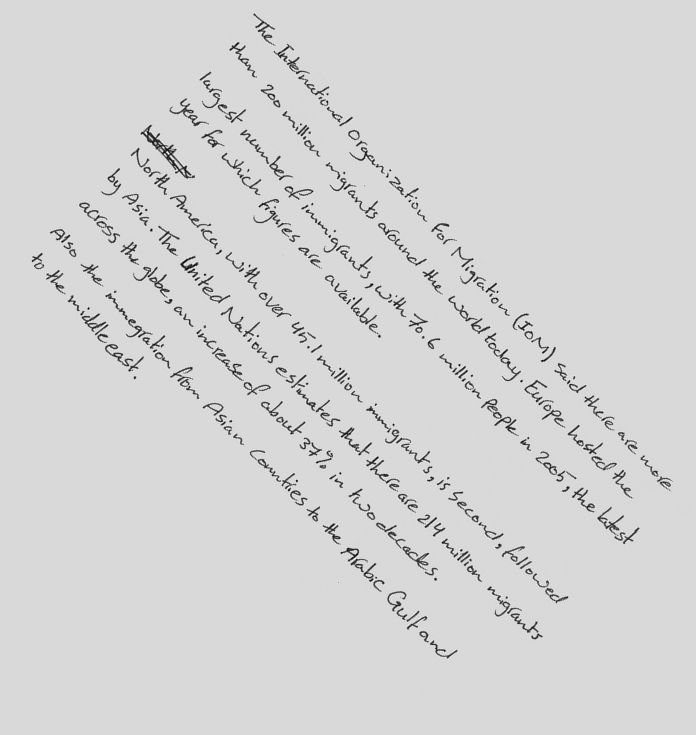 The International Organization For Migration (IoM) said there are more
than 200 million migrants around the world today. Europe hosted the
largest number of immigrants, with 70.6 million people in 2005, the latest
year for which figures are available.
North America, with over 45.1 million immigrants, is second, followed
by Asia. The United Nations estimates that there are 214 million migrants
across the globe, an increase of about 37% in two decades.
Also the immegration from Asian Countries to the Arabic Gulf and
to the middle east.